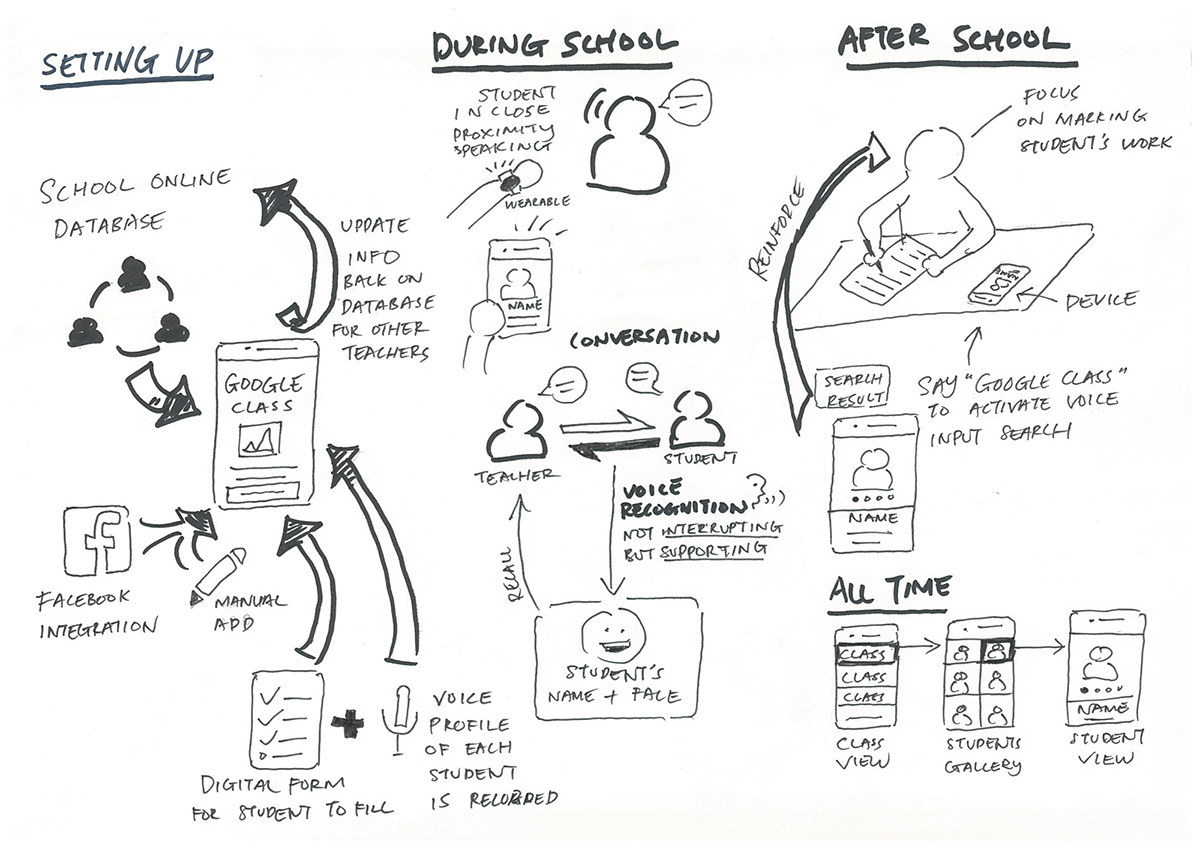 SETTING UP
SCHOOL ONLINE
DATABASE
UPDATE
INFO
BACK ON
DATABASE
FOR OTHER
TEACHERS
GOOGLE
CLASS
f
FACEBOOK
INTEGRATION
MANUAL
ADD
DIGITAL FORM
FOR STUDENT TO FILL
VOICE
PROFILE
OF EACH
STUDENT
IS RELORDED
DURING SCHOOL
STUDENT
IN CLOSE
PROXIMITY
SPEAKING
WEARABLE
NAME
CONVERSATION
TEACHER
STUDENT
VOICE
RECOGNITION
NOT INTERRUPTING
BUT SUPPORTING
RECALL
STUDENT'S
NAME + FACE
AFTER SCHOOL
FOCUS
ON MARKING
STUDENT'S WORK
REINFORCE
NAME
DEVICE
SAY "GOOGLE CLASS"
TO ACTIVATE VOICE
INPUT SEARCH
SEARCH
RESULT
NAME
ALL TIME
CLASS
CLASS
CLASS
CLASS
VIEW
STUDENTS
GALLERY
NAME
STUDENT
VIEW